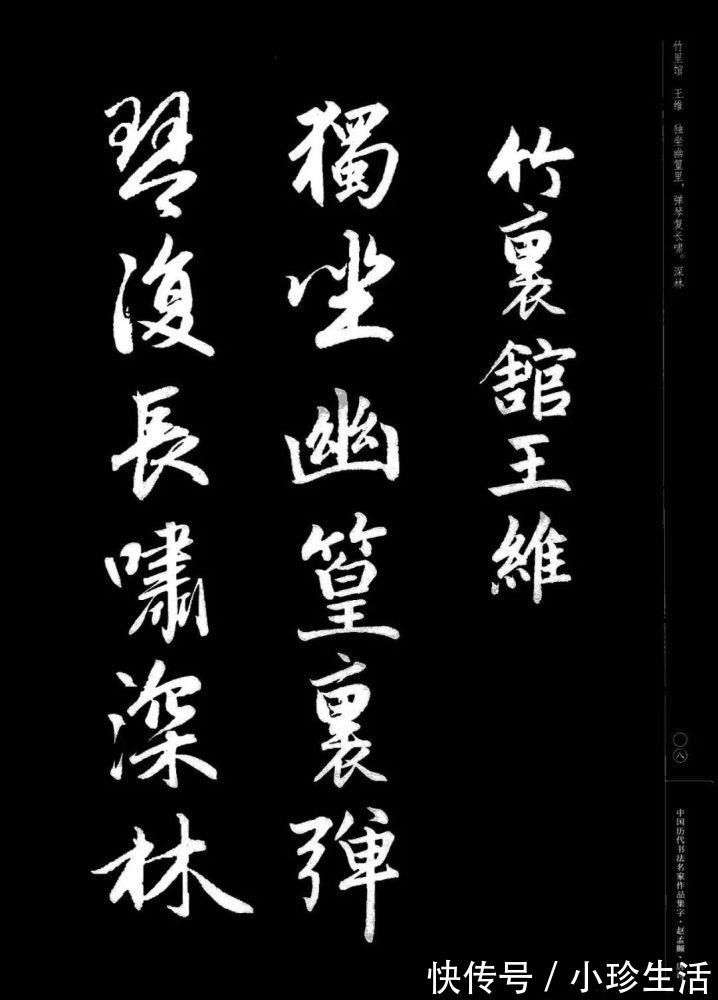 竹里馆 王维 独坐幽篁里，弹琴复长啸。深林
竹裏館王維
獨坐幽篁裏彈
琴復長嘯深林
〇八
中国历代书法名家作品集字·赵孟頫·
快传号／小珍生活